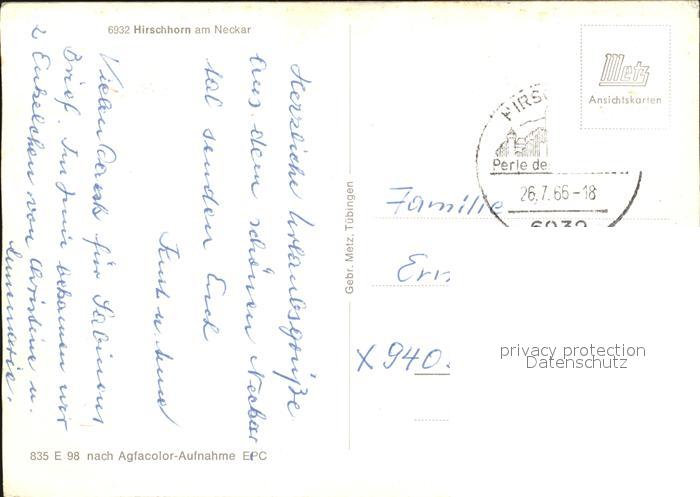 6932 Hirschhorn am Neckar
Herzliche Urlaubsgrüße
aus dem schönen Neckar
tal senden Euch
Vielen Dank für Sabinens
Brief. Im Juni bekamen wir
2 Enkelchen von Christine u.
Annemarie.
835 E 98 nach Agfacolor-Aufnahme EPC
Gebr. Metz, Tübingen
Metz
Ansichtskarten
HIRS
Perle de
26.7.66-18
6932
Familie
X 940
privacy protection
Datenschutz